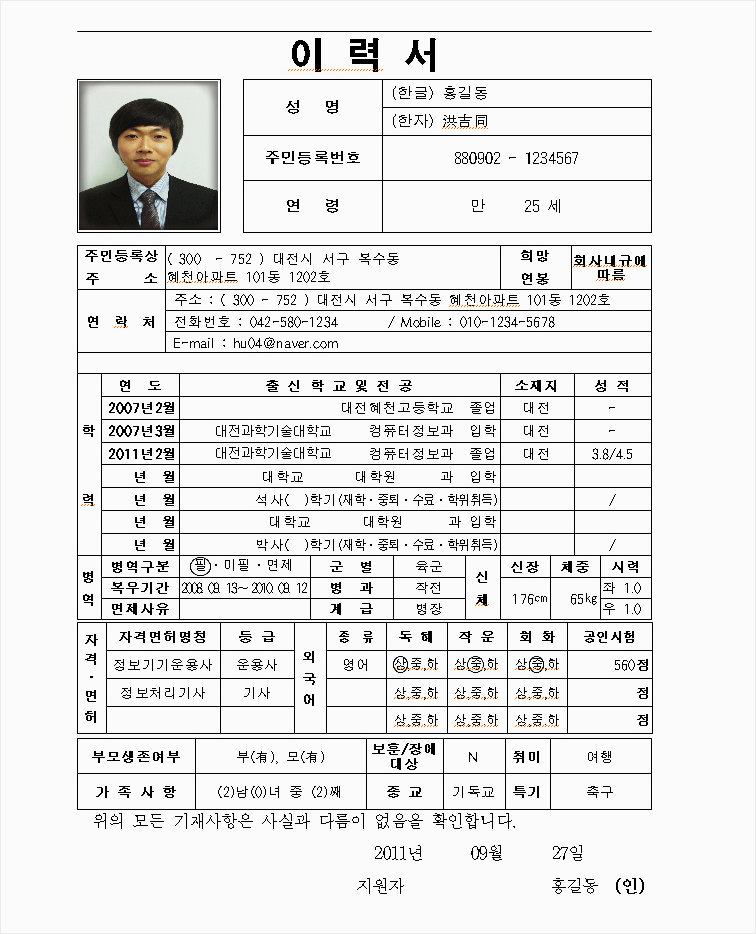 이 력 서
성 명 (한글) 홍길동
(한자) 洪吉同
주민등록번호 880902 - 1234567
연 령 만 25 세
주민등록상 주 소 ( 300 - 752 ) 대전시 서구 복수동 희망 연봉 회사내규에 따름
혜천아파트 101동 1202호
연 락 처 주소 : ( 300 - 752 ) 대전시 서구 복수동 혜천아파트 101동 1202호
전화번호 : 042-580-1234 / Mobile : 010-1234-5678
E-mail : hu04@naver.com
학 력 연 도 출 신 학 교 및 전 공 소재지 성 적
2007년2월 대전혜천고등학교 졸업 대전 -
2007년3월 대전과학기술대학교 컴퓨터정보과 입학 대전 -
2011년2월 대전과학기술대학교 컴퓨터정보과 졸업 대전 3.8/4.5
년 월 대학교 대학원 과 입학
년 월 석사( )학기(재학·중퇴·수료·학위취득) /
년 월 대학교 대학원 과 입학
년 월 박사( )학기(재학·중퇴·수료·학위취득) /
병 역 병역구분 필·미필·면제 군 별 육군 신 체 신장 체중 시력
복우기간 2008. 09. 13~ 2010. 09. 12 병 과 작전 176cm 65kg 좌 1.0
면제사유 계 급 병장 우 1.0
자 격 · 면 허 자격면허명칭 등 급 외 국 어 종 류 독 해 작 운 회 화 공인시험
정보기기운용사 운용사 영어 상,중,하 상,중,하 상,중,하 560점
정보처리기사 기사 상,중,하 상,중,하 상,중,하 점
상,중,하 상,중,하 상,중,하 점
부모생존여부 부(有), 모(有) 보훈/장애 대상 N 취미 여행
가 족 사 항 (2)남(0)녀 중 (2)째 종 교 기독교 특기 축구
위의 모든 기재사항은 사실과 다름이 없음을 확인합니다.
2011년 09월 27일
지원자 홍길동 (인)